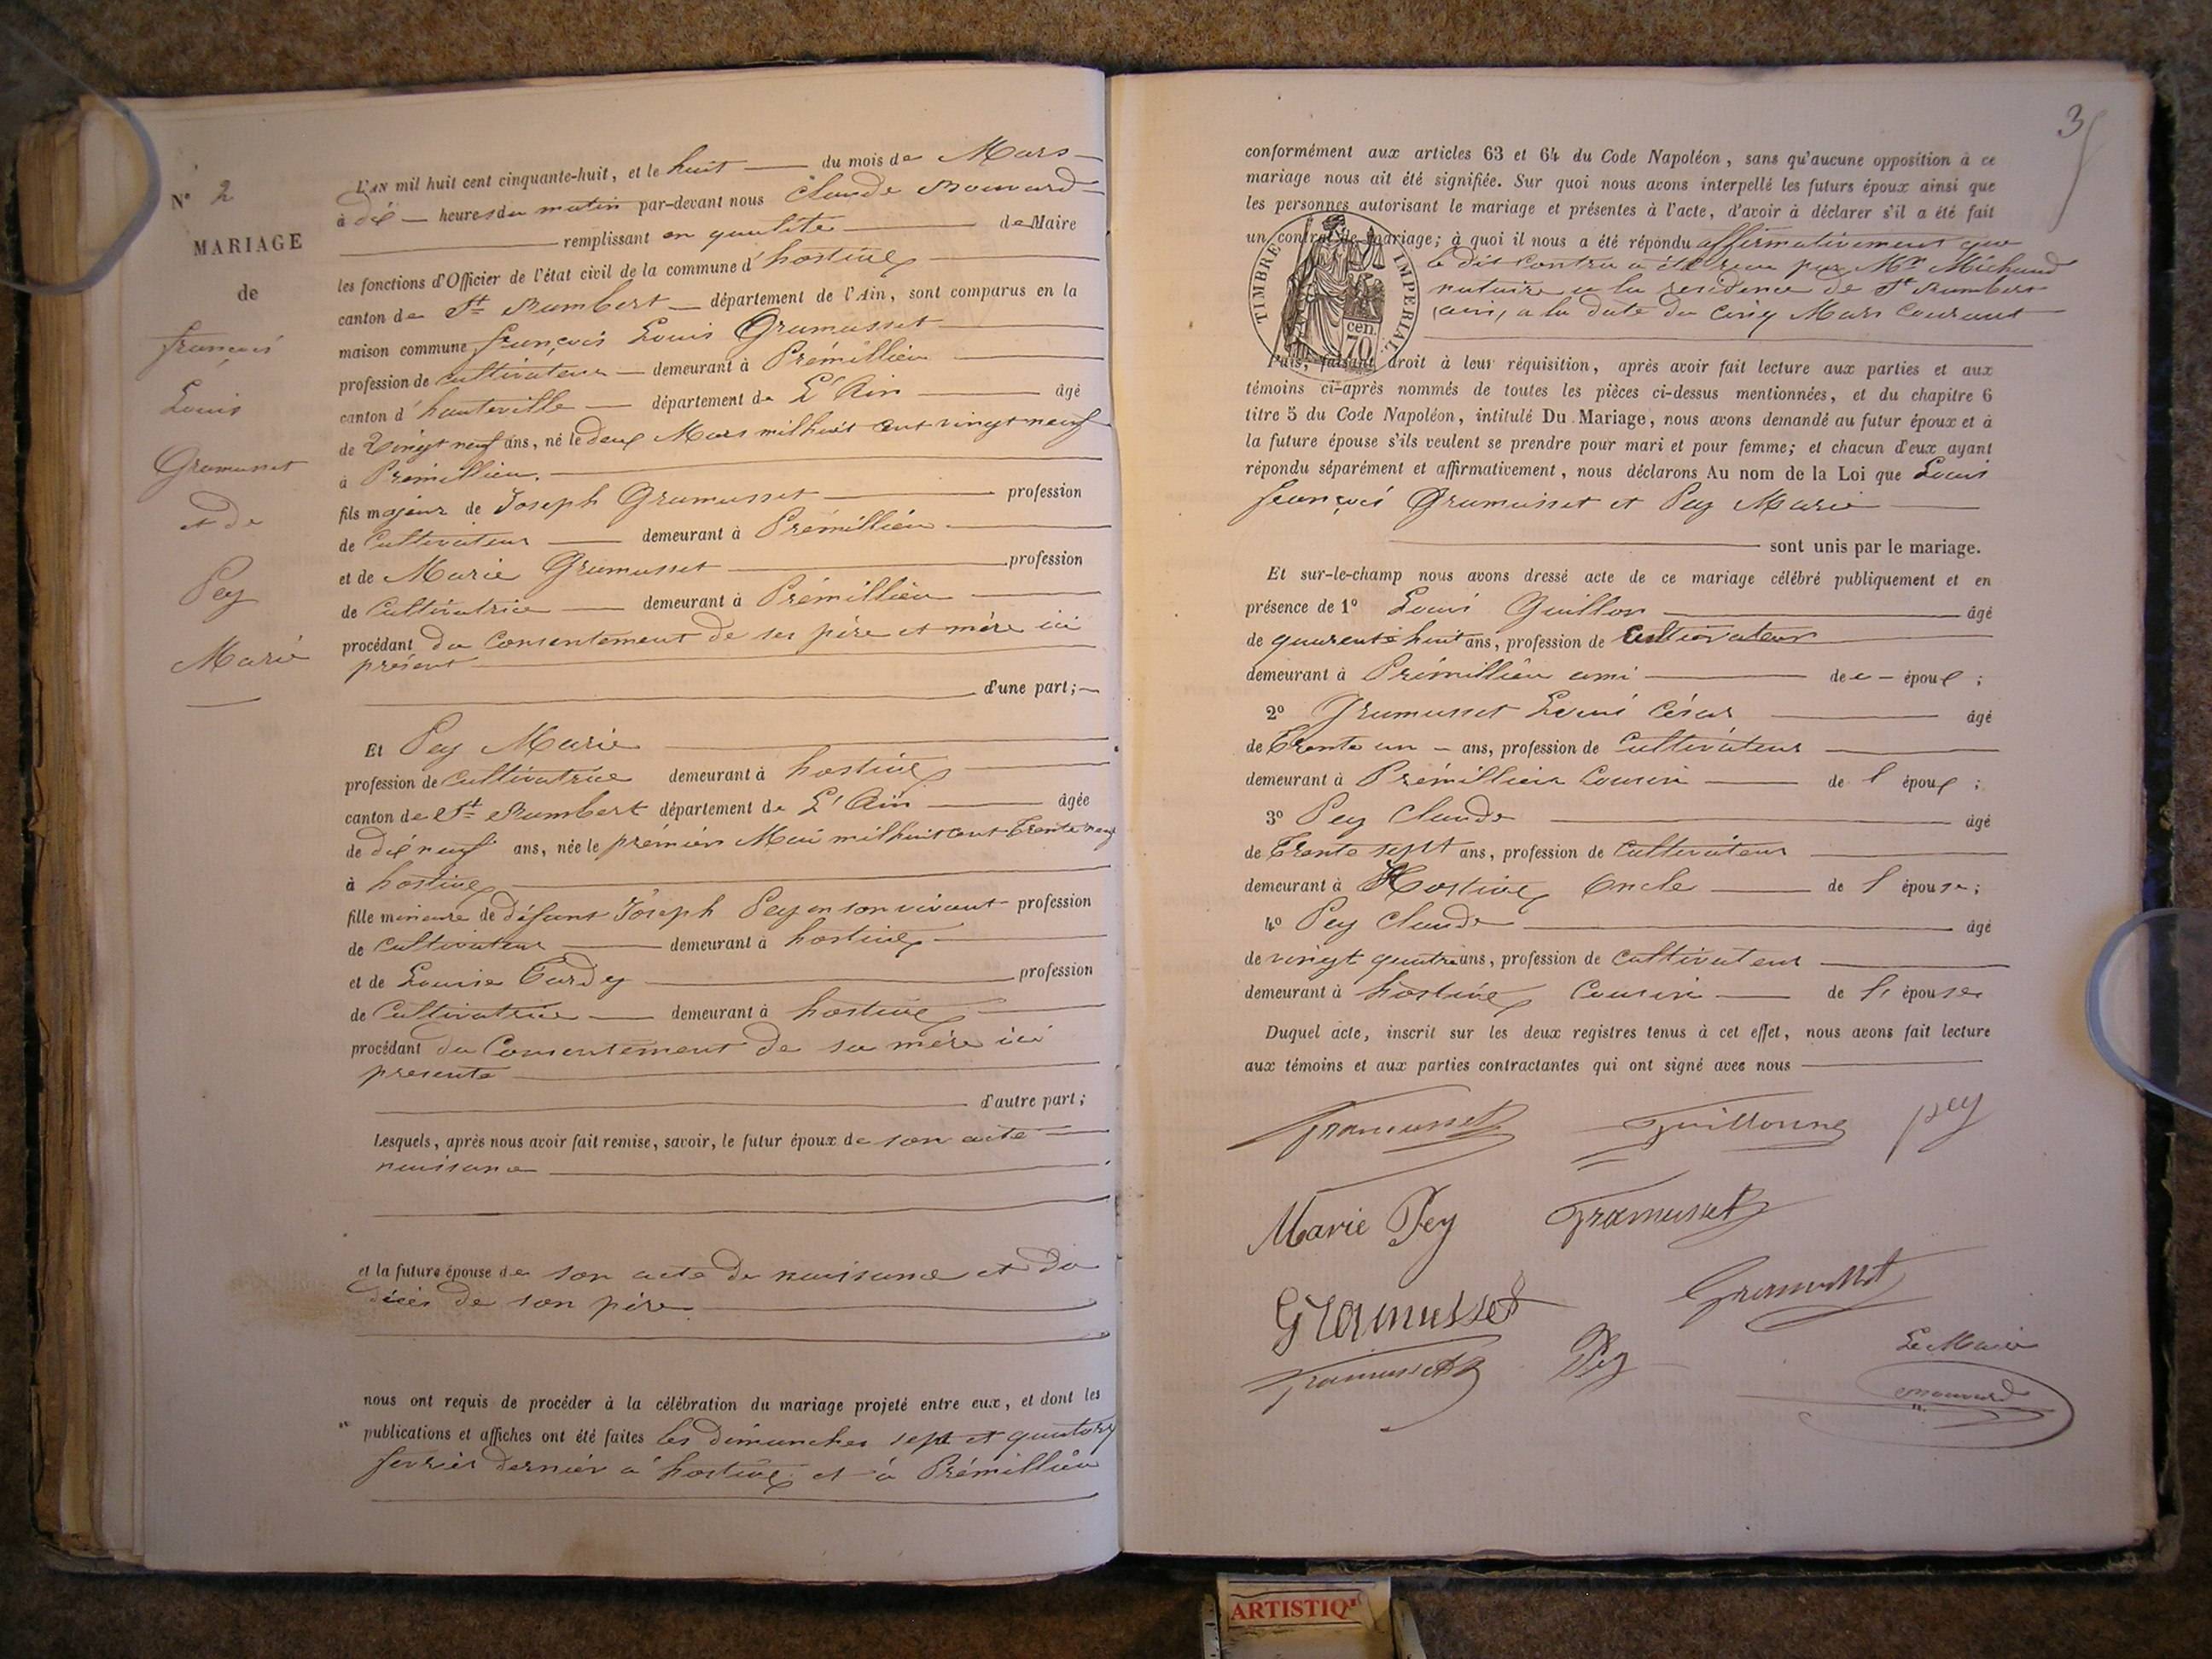 N° 2
MARIAGE
de
françois
Louis
Gramusset
et de
Pey
Marie
L'AN mil huit cent cinquante-huit, et le huit du mois de Mars
à dix heures du matin par-devant nous Claude
remplissant en qualité de Maire
les fonctions d'Officier de l'état civil de la commune d'hostiaz
canton de St Rambert département de l'Ain, sont comparus en la
maison commune françois Louis Gramusset
profession de Cultivateur demeurant à Prémillieu
canton d'hauteville département de L'Ain âgé
de Vingt neuf ans, né le deux Mars mil huit cent vingt neuf
à Prémillieu.
fils majeur de Joseph Gramusset profession
de Cultivateur demeurant à Prémillieu
et de Marie Gramusset profession
de Cultivatrice demeurant à Prémillieu
procédant du Consentement de ses père et mère ici
présent
d'une part;
Et Pey Marie
profession de Cultivatrice demeurant à hostiaz
canton de St Rambert département de L'Ain âgée
de dix neuf ans, née le prémier Mai mil huit cent trente neuf
à hostiaz
fille mineure de défunt Joseph Pey en son vivant profession
de Cultivateur demeurant à hostiaz
et de Louise Tardy profession
de Cultivatrice demeurant à hostiaz
procédant du Consentement de sa mère ici
presente
d'autre part;
Lesquels, après nous avoir fait remise, savoir, le futur époux de son acte
naissance
et la future épouse de son acte de naissance et du
décès de son père
nous ont requis de procéder à la célébration du mariage projeté entre eux, et dont les
publications et affiches ont été faites les dimanches sept et quatorze
fevrier dernier à hostiaz et à Prémillieu
3
conformément aux articles 63 et 64 du Code Napoléon, sans qu'aucune opposition à ce
mariage nous ait été signifiée. Sur quoi nous avons interpellé les futurs époux ainsi que
les personnes autorisant le mariage et présentes à l'acte, d'avoir à déclarer s'il a été fait
un contrat de mariage; à quoi il nous a été répondu affirmativement que
le dit Contra a été reçu par Mr Michaud
notaire a la residence de St Rambert
(ain) a la date du Cinq Mars Courant
TIMBRE IMPERIAL
cen.
70
Puis, faisant droit à leur réquisition, après avoir fait lecture aux parties et aux
témoins ci-après nommés de toutes les pièces ci-dessus mentionnées, et du chapitre 6
titre 5 du Code Napoléon, intitulé Du Mariage, nous avons demandé au futur époux et à
la future épouse s'ils veulent se prendre pour mari et pour femme; et chacun d'eux ayant
répondu séparément et affirmativement, nous déclarons Au nom de la Loi que Louis
françois Gramusset et Pey Marie
sont unis par le mariage.
Et sur-le-champ nous avons dressé acte de ce mariage célébré publiquement et en
présence de 1° Louis Guillon âgé
de quarente huit ans, profession de Cultivateur
demeurant à Prémillieu ami de époux;
2° Gramusset Louis César âgé
de Trente un ans, profession de Cultivateur
demeurant à Prémillieu Cousin de l époux;
3° Pey Claude âgé
de Trente sept ans, profession de Cultivateur
demeurant à Hostiaz Oncle de l épouse;
4° Pey Claude âgé
de vingt quatre ans, profession de Cultivateur
demeurant à hostiaz Cousin de l'épouse
Duquel acte, inscrit sur les deux registres tenus à cet effet, nous avons fait lecture
aux témoins et aux parties contractantes qui ont signé avec nous
Gramusset Guillon pey
Marie Pey Gramusset
Gramusset Gramusset
Gramusset Pey Le Maire
ARTISTIQ